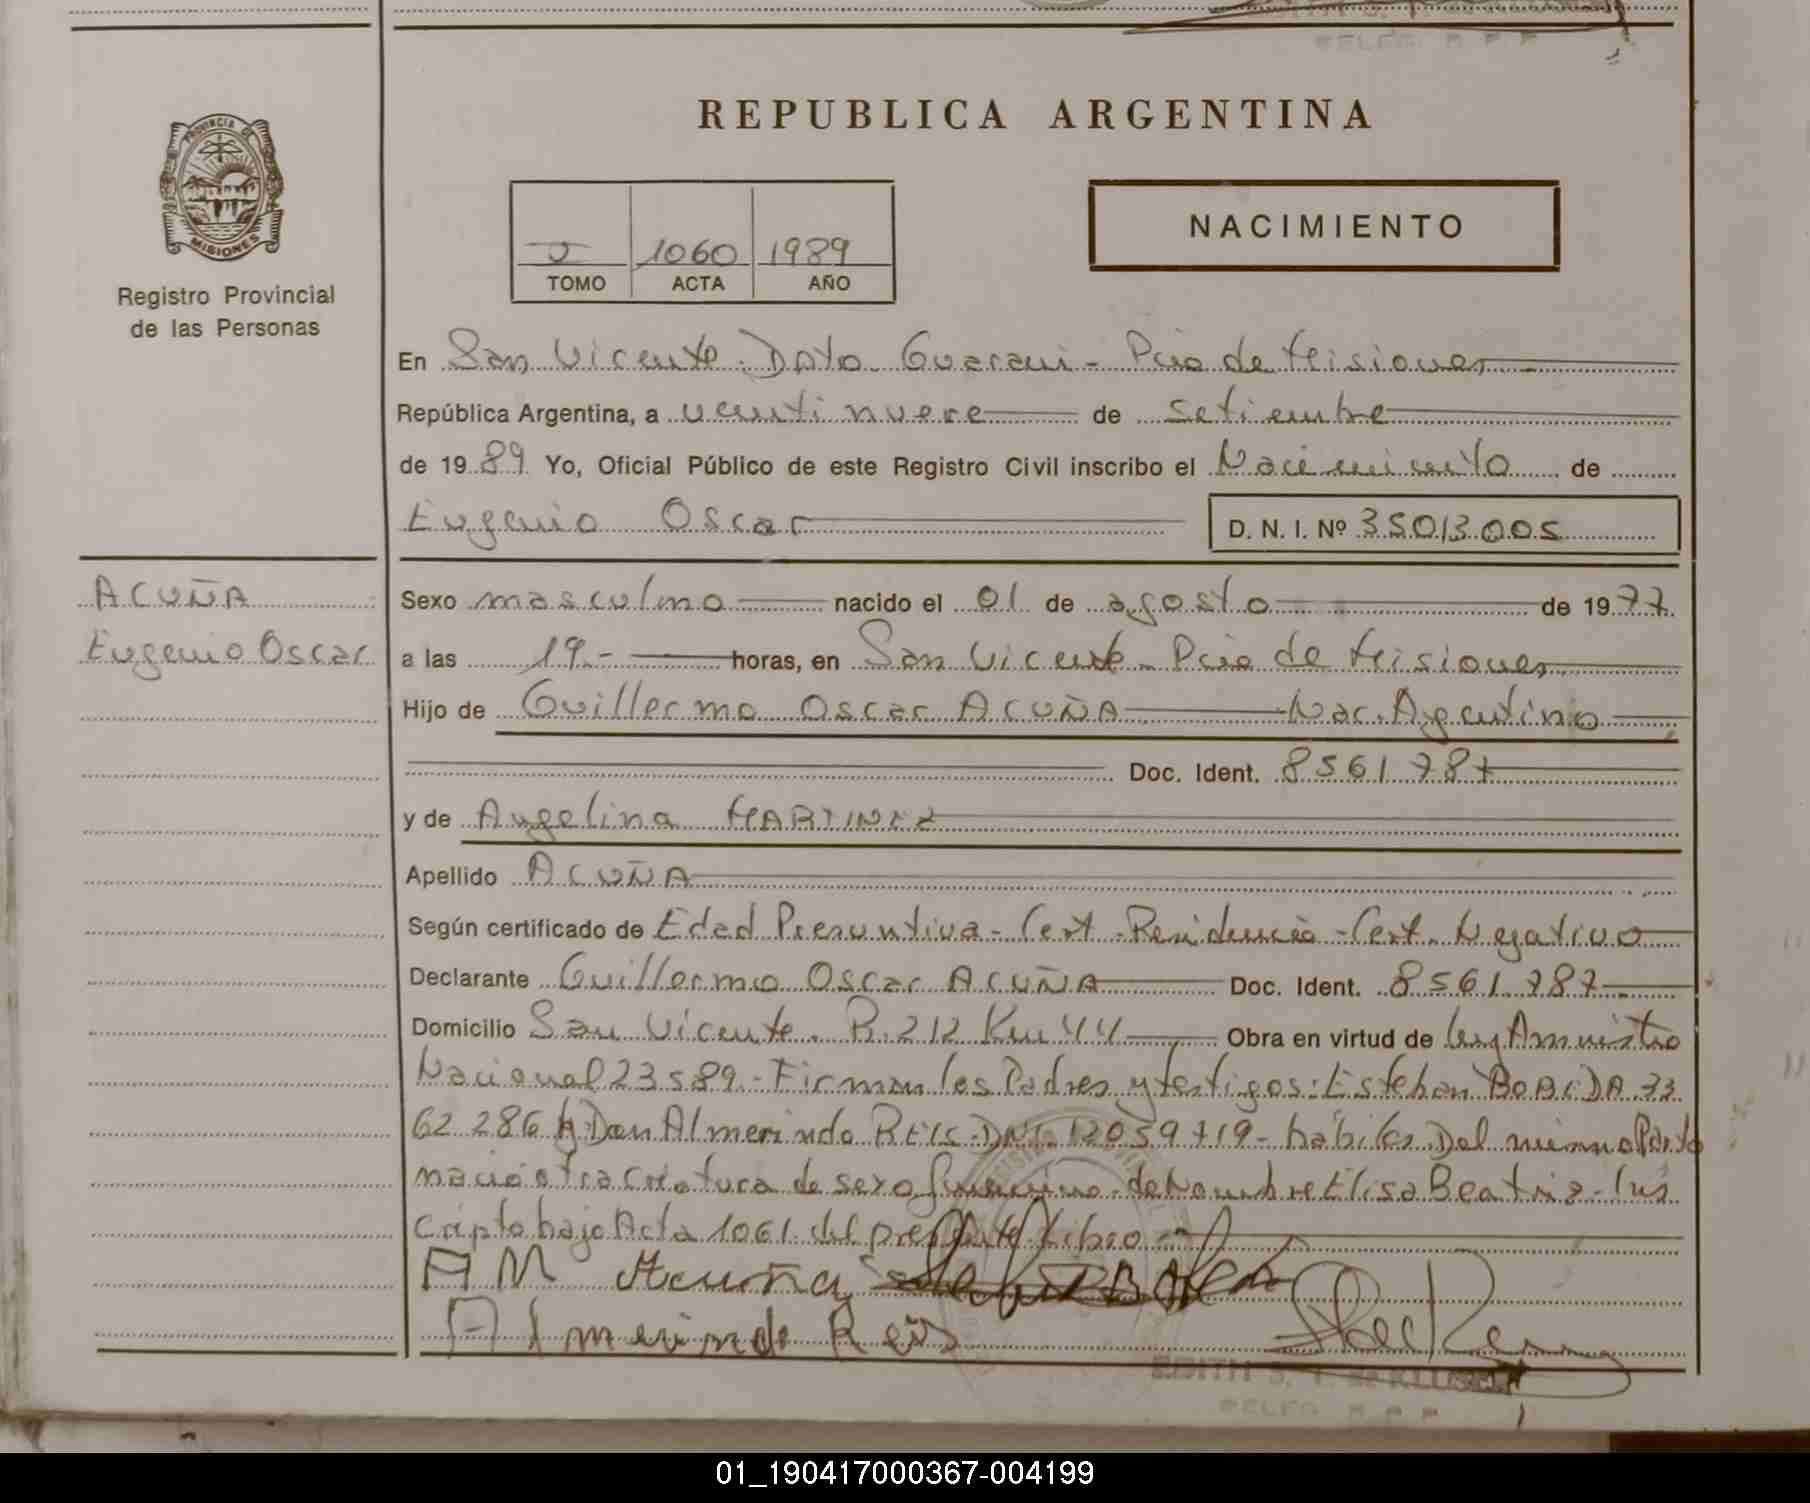 PROVINCIA DE
MISIONES
Registro Provincial
de las Personas
REPUBLICA ARGENTINA
NACIMIENTO
1060 1989
TOMO ACTA AÑO
En San Vicente. Dpto. Guarani - Pcia de Misiones
República Argentina, a veinti nueve de setiembre
de 1989 Yo, Oficial Público de este Registro Civil inscribo el Nacimiento de
Eugenio Oscar
D. N. I. Nº 35013005
ACUÑA
Eugenio Oscar
Sexo masculino nacido el 01 de agosto de 1977
a las 19.- horas, en San Vicente - Pcia de Misiones
Hijo de Guillermo Oscar ACUÑA Nac. Argentino
Doc. Ident. 8561787
y de Angelina MARTINEZ
Apellido ACUÑA
Según certificado de Edad Presuntiva - Cert. Residencia - Cert. Negativo
Declarante Guillermo Oscar ACUÑA Doc. Ident. 8561787
Domicilio San Vicente. R. 212 Km 44 Obra en virtud de ley Amnistia
Nacional 23589.- Firman los Padres y testigos: Esteban BOBADA 33
62 286 y Don Almerindo REIS. DNI. 12059719 - hábiles. Del mismo Parto
nació otra criatura de sexo femenino de Nombre Elisa Beatriz - Ins
cripto bajo Acta 1061 del presente Libro
A M Acuña
Almerindo Reis
EDITH S.
DELEG. R. P. P.
01_190417000367-004199